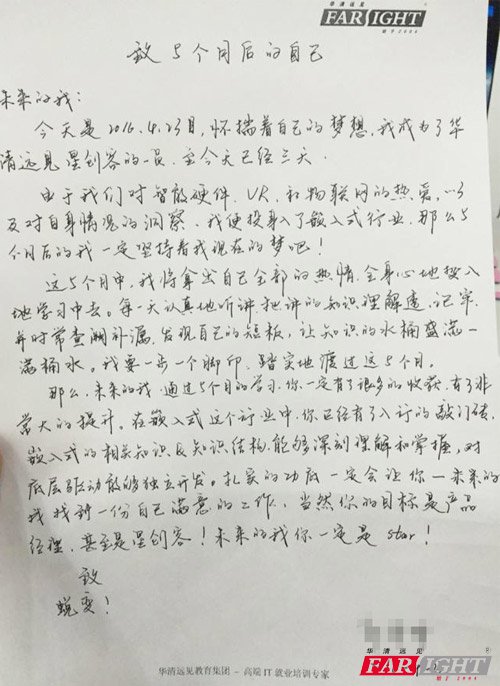 华清远见
FARSIGHT
始于2004
致5个月后的自己
未来的我:
今天是2016.4.23日,怀揣着自己的梦想,我成为了华
清远见星创客的一员,至今天已经三天.
由于我们对智能硬件、VR、和物联网的热爱,以
及对自身情况的洞察、我便投身入了嵌入式行业,那么5
个月后的我一定坚持着我现在的梦吧!
这5个月中,我将拿出自己全部的热情,全身心地投入
地学习中去。每一天认真地听讲,把讲的知识理解透、记牢,
并时常查阅补漏,发现自己的短板,让知识的水桶盛满一
满桶水。我要一步一个脚印,踏实地渡过这5个月。
那么,未来的我,通过5个月的学习,你一定有了很多的收获,有了非
常大的提升。在嵌入式这个行业中,你已经有了入订的敲门砖,
嵌入式的相关知识及知识结构,能够深刻理解和掌握,对
底层驱动能够独立开发。扎实的功底一定会让你一未来的
我找到一份自己满意的工作,当然你的目标是产品
经理,甚至是星创客!未来的我你一定是star!
致
蜕变!
华清远见教育集团 - 高端IT就业培训专家
华清远见
FARSIGHT
始于2004